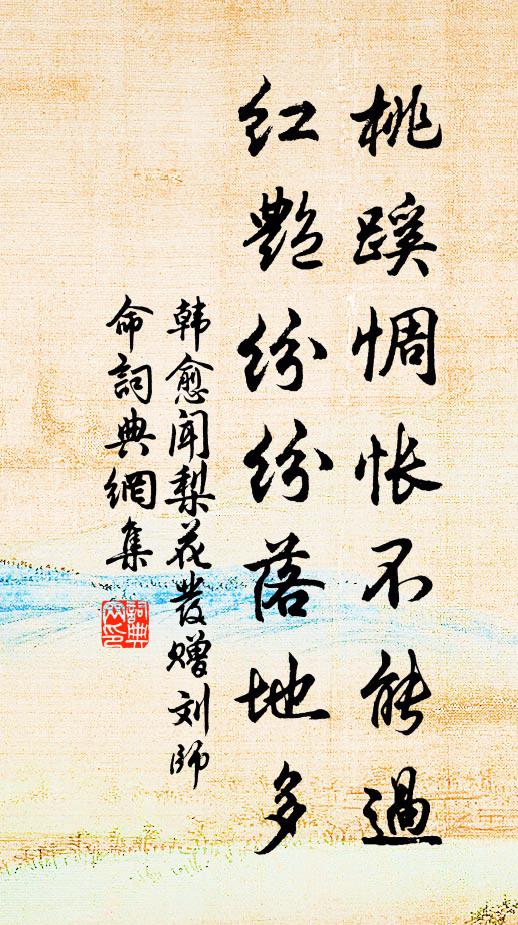 桃蹊惆怅不能過
红艷纷纷落地多
韩愈闻梨花發赠刘師
命詞典網集
詞典网印